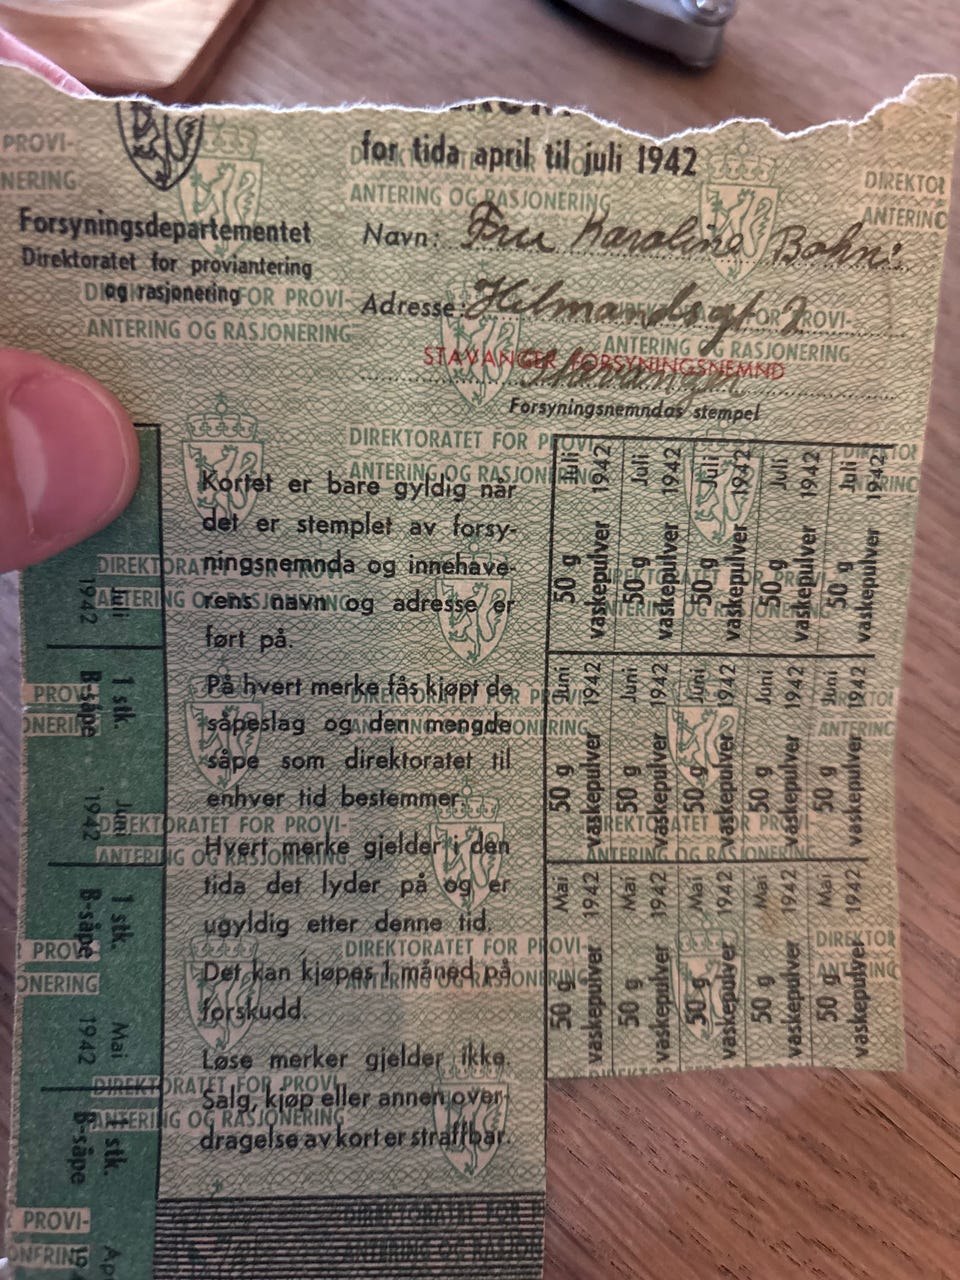 for tida april til juli 1942
Forsyningsdepartementet
Direktoratet for proviantering
og rasjonering
Navn: Fru Karoline
Adresse:
STAVANGER FORSYNINGSNEMND
Stavanger
Forsyningsnemndas stempel
Kortet er bare gyldig når
det er stemplet av forsy-
ningsnemnda og innehave-
rens navn og adresse er
ført på.
På hvert merke fås kjøpt de
såpeslag og den mengde
såpe som direktoratet til
enhver tid bestemmer.
Hvert merke gjelder i den
tida det lyder på og er
ugyldig etter denne tid.
Det kan kjøpes 1 måned på
forskudd.
Løse merker gjelder ikke.
Salg, kjøp eller annen over-
dragelse av kort er straffbar.
Juli 1942
50 g vaskepulver
Juli 1942
50 g vaskepulver
Juli 1942
50 g vaskepulver
Juli 1942
50 g vaskepulver
Juli 1942
50 g vaskepulver
Juni 1942
50 g vaskepulver
Juni 1942
50 g vaskepulver
Juni 1942
50 g vaskepulver
Juni 1942
50 g vaskepulver
Juni 1942
50 g vaskepulver
Mai 1942
50 g vaskepulver
Mai 1942
50 g vaskepulver
Mai 1942
50 g vaskepulver
Mai 1942
50 g vaskepulver
Mai 1942
50 g vaskepulver
Juli
1942
1 stk.
B-såpe
Juni
1942
1 stk.
B-såpe
Mai
1942
1 stk.
B-såpe
DIREKTORATET FOR PROVI-
ANTERING OG RASJONERING